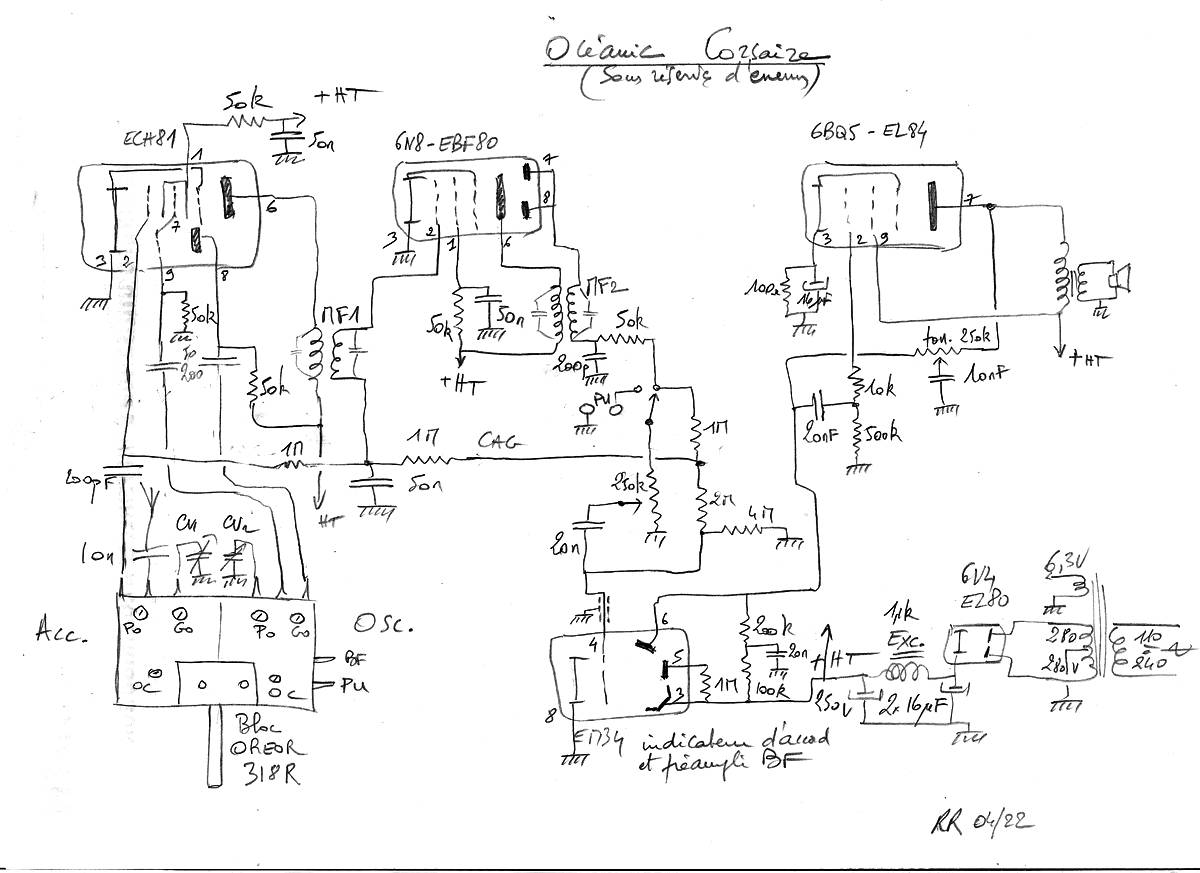 Océanic Corsaire
(Sous réserve d'erreurs)
50k
+HT
50n
ECH81
1
6
7
3
2
9
8
50k
50
200
50k
MF1
6N8-EBF80
7
8
3
2
1
6
50k
50n
+HT
MF2
50k
200p
PU
1M
6BQ5 - EL84
7
3
2
9
100Ω
16µF
ton. 250k
10nF
+HT
10k
20nF
500k
200pF
1M
1M
CAG
50n
HT
250k
2M
4M
20n
10n
CV1
CV2
Acc.
PO
GO
PO
GO
OSC.
BF
PU
OC
OC
Bloc
OREOR
318R
4
6
5
3
8
1M
200k
20n
100k
+HT
250V
1,1k
Exc.
2x16µF
6V4
EZ80
6,3V
280
280V
110
240
EM34
indicateur d'accord
et préampli BF
RR 04/22